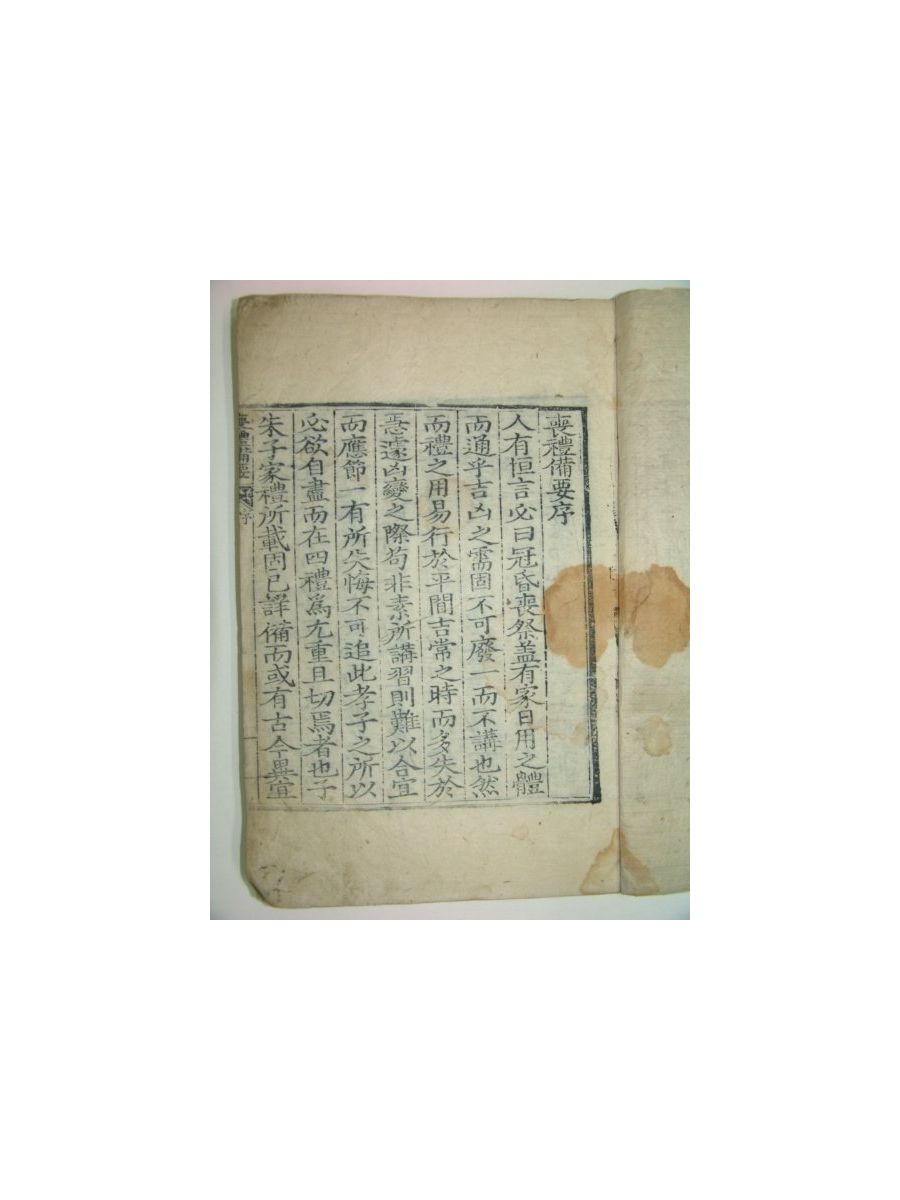 喪禮備要序
人有恒言必曰冠昏喪祭盖有家日用之體
而通乎吉凶之需固不可廢一而不講也然
而禮之用易行於平閒吉常之時而多失於
急遽凶變之際苟非素所講習則難以合宜
而應節一有所失悔不可追此孝子之所以
必欲自盡而在四禮爲尤重且切焉者也子
朱子家禮所載固已詳備而或有古今異宜
喪禮備要 序